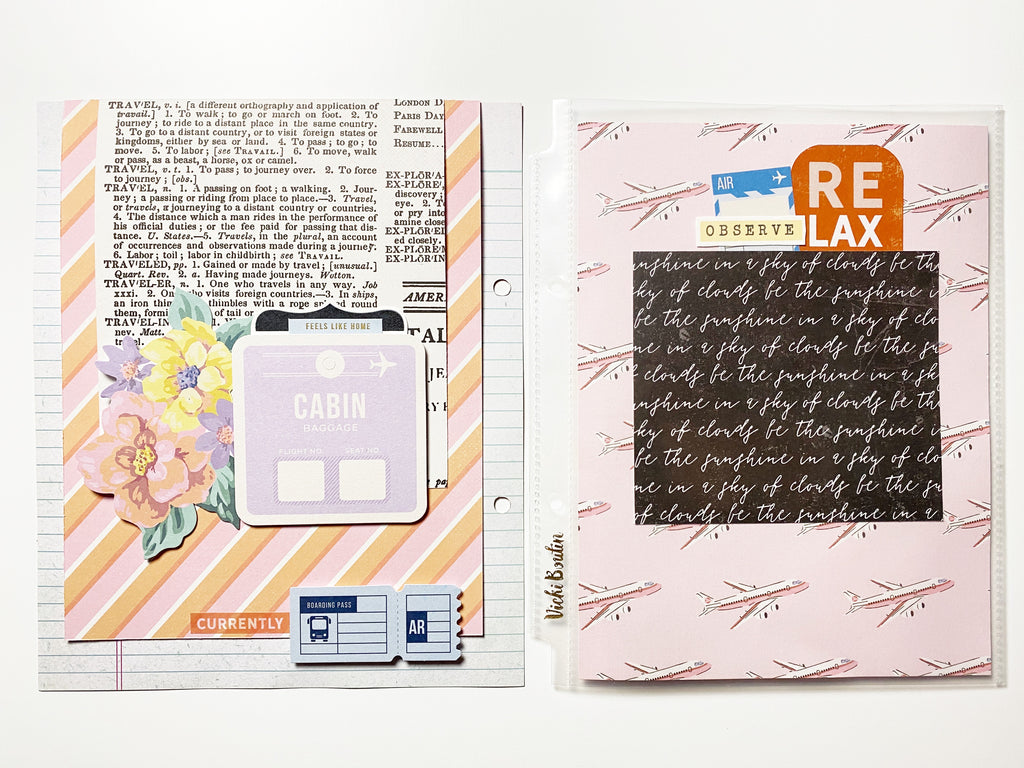 TRAV'EL, v. i. [a different orthography and application of
travail.] 1. To walk; to go or march on foot. 2. To
journey; to ride to a distant place in the same country.
3. To go to a distant country, or to visit foreign states or
kingdoms, either by sea or land. 4. To pass; to go; to
move. 5. To labor; [see TRAVAIL.] 6. To move, walk
or pass, as a beast, a horse, ox or camel.
TRAV'EL, v. t. 1. To pass; to journey over. 2. To force
to journey; [obs.]
TRAV'EL, n. 1. A passing on foot; a walking. 2. Jour-
ney; a passing or riding from place to place.—3. Travel,
or travels, a journeying to a distant country or countries.
4. The distance which a man rides in the performance of
his official duties; or the fee paid for passing that dis-
tance. U. States.—5. Travels, in the plural, an account
of occurrences and observations made during a journey.
6. Labor; toil; labor in childbirth; see TRAVAIL.
TRAV'ELED, pp. 1. Gained or made by travel; [unusual.]
Quart. Rev. 2. a. Having made journeys. Wotton.
TRAV'EL-ER, n. 1. One who travels in any way. Job
xxxi. 2. One who visits foreign countries.—3. In ships,
an iron thimble or thimbles with a rope round
them, forming of tail or
TRAV'EL-IN
ney. Matt.
LONDON D
PARIS DAY
FAREWELL
RESUME
EX-PLOR'A
EX-PLORE'
discovery;
eye. 2. T
or pry into
amine close
EX-PLOR'ED
ed closely.
EX-PLOR'E
EX-PLOR'IN
AMER
TAL
FEELS LIKE HOME
CABIN
BAGGAGE
FLIGHT NO.
SEAT NO.
CURRENTLY
BOARDING PASS
AR
Vicki Boutin
AIR
RE
LAX
OBSERVE
unshine in a sky of clouds be th
sky of clouds be the sunshine in
be the sunshine in a sky of clo
me in a sky of clouds be the su
clouds be the sunshine in a sky
unshine in a sky of clouds be th
sky of clouds be the sunshine in
be the sunshine in a sky of clo
me in a sky of clouds be the su
of clouds be the sunshine in a